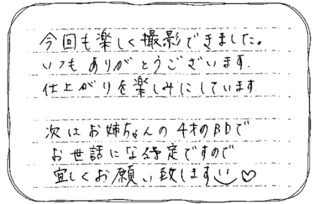 今回も楽しく撮影できました。
いつもありがとうございます.
仕上がりを楽しみにしています
次はお姉ちゃんの4才のBDで
お世話になる予定ですので
宜しくお願い致します